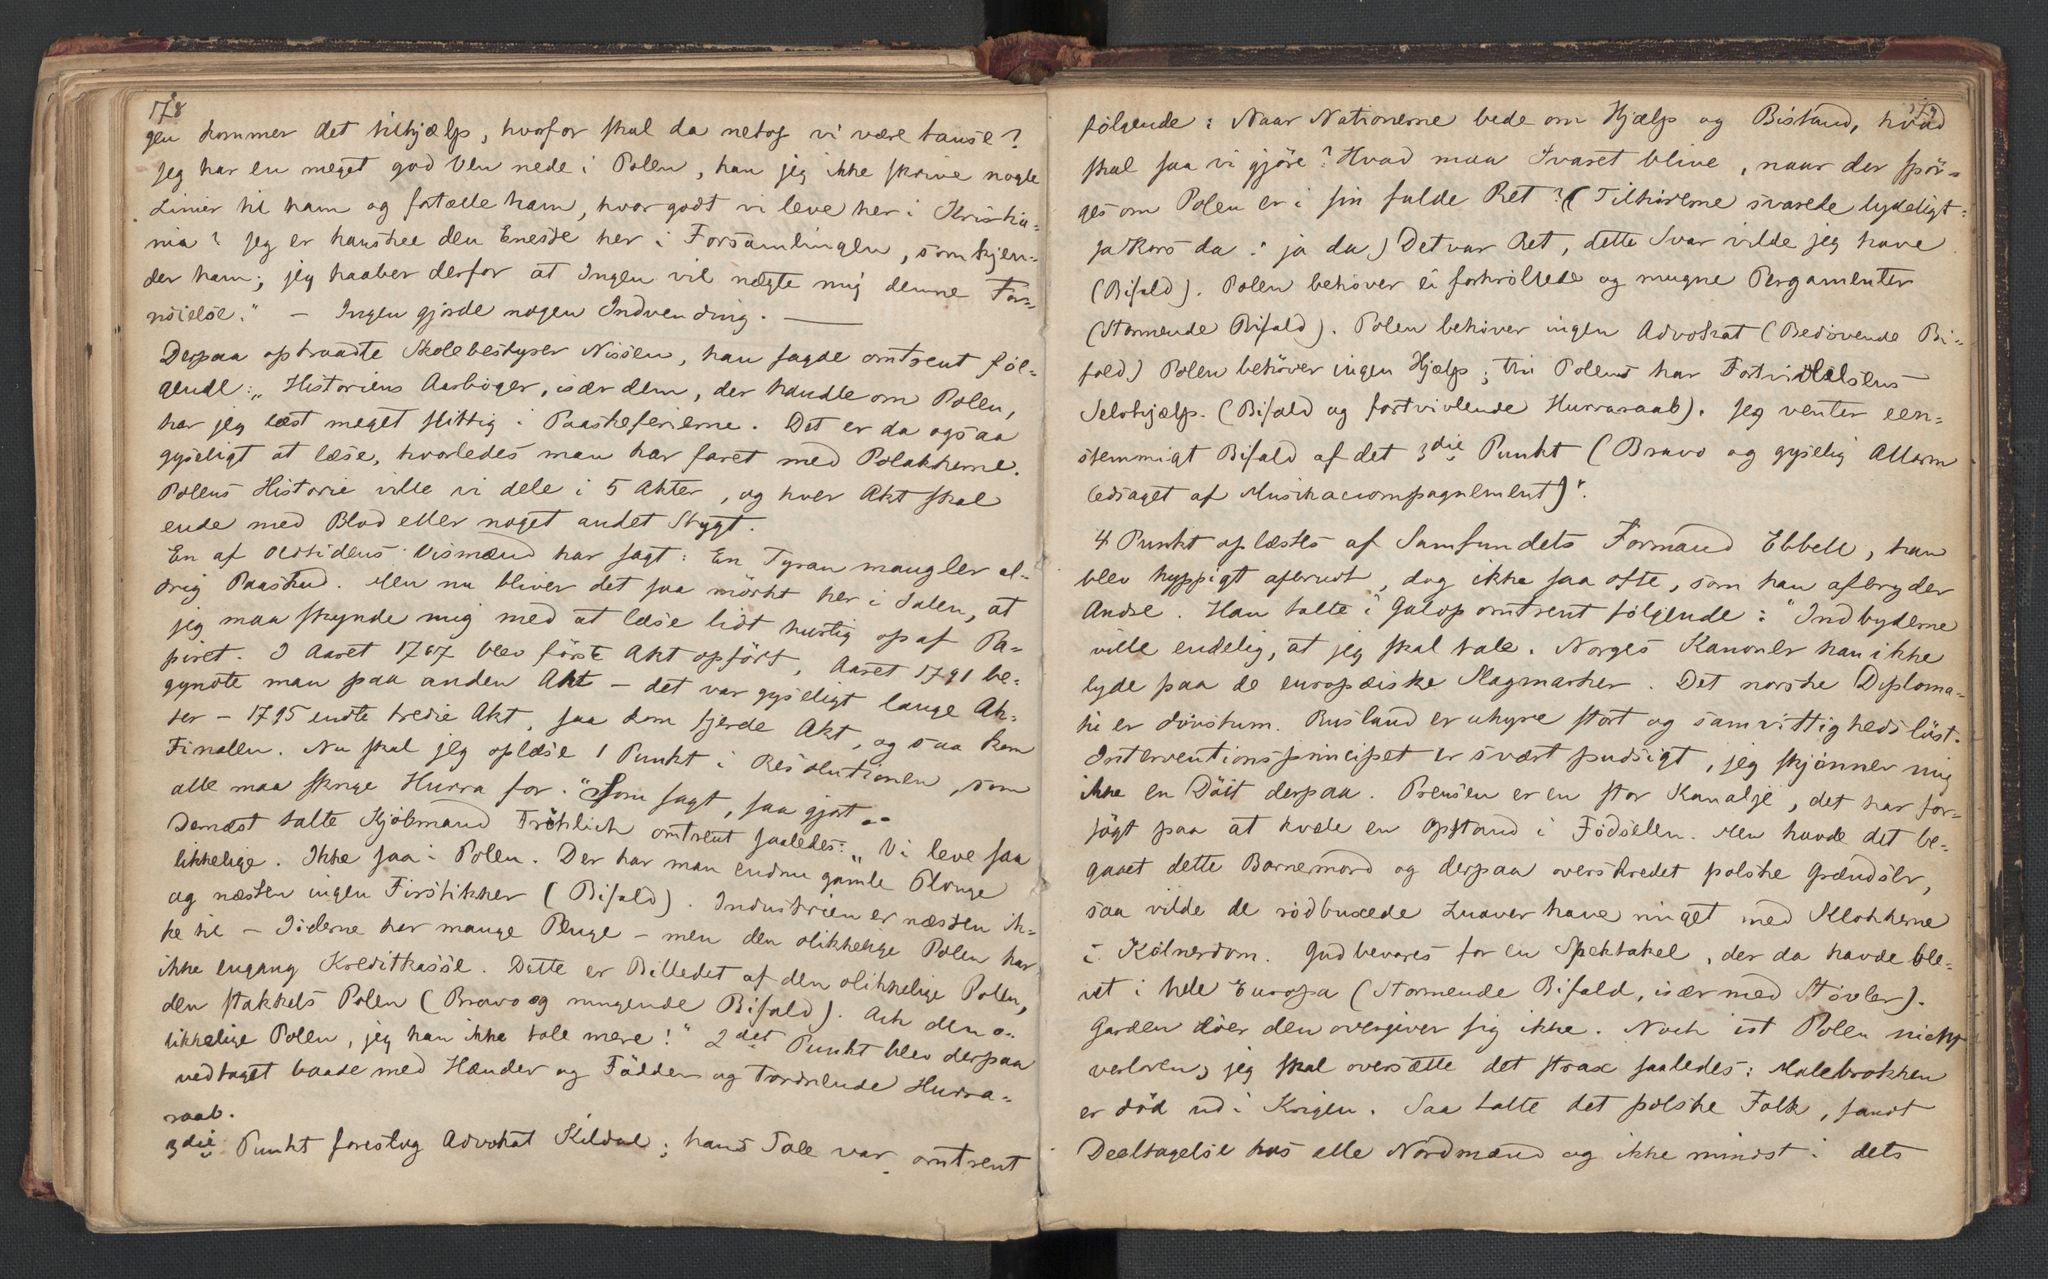 178
gen kommer det tilhjælp, hvorfor skal da netop vi være tause?
Jeg har en meget god Ven nede i Polen, kan jeg ikke skrive nogle
Linier til ham og fortælle ham, hvor godt vi leve her i Kristia-
nia? Jeg er kanskee den Eneste her i Forsamlingen, som kjen-
der ham; jeg haaber derfor at Ingen vil nægte mig denne For-
nöielse." — Ingen gjorde nogen Indvending. —
Derpaa optraadte Skolebestyrer Nissen, han sagde omtrent föl-
gende: „Historiens Aarböger, især dem, der handle om Polen,
har jeg læst meget flittig i Paaskeferierne. Det er da ogsaa
gyseligt at læse, hvorledes man har faret med Polakkerne.
Polens Historie ville vi dele i 5 Akter, og hver Akt skal
ende med Blod eller noget andet Stygt.
En af Oldtidens Vismænd har sagt: En Tyran mangler al-
drig Paaskud. Men nu bliver det saa mörkt her i Salen, at
jeg maa skynde mig med at læse lidt hurtig op af Pa-
piret. I Aaret 1767 blev förste Akt opfört, Aaret 1791 be-
gyndte man paa anden Akt — det var gyseligt lange Ak-
ter — 1795 endte tredie Akt, saa kom fjerde Akt, og saa kom
Finalen. Nu skal jeg oplæse 1 Punkt i Resolutionen, som
alle maa skrige Hurra for." Som sagt, saa gjort..
Dernæst talte Kjöbmand Fröhlich omtrent saaledes: „Vi leve saa
likkelige. Ikke saa i Polen. Der har man endnu gamle Plouge
og næsten ingen Firstikker (Bifald). Industrien er næsten ik-
ke til — Jöderne har mange Penge — men den olikkelige Polen har
ikke engang Kreditkasse. Dette er Billedet af den olikkelige Polen,
den stakkels Polen (Bravo og rungende Bifald). Ach den o-
likkelige Polen, jeg kan ikke tale mere!" 2det Punkt blev derpaa
vedtaget baade med Hænder og Födder og tordnende Hurra-
raab.
3die Punkt foreslog Advokat Kildal; hans Tale var omtrent
179
fölgende: Naar Nationerne bede om Hjælp og Bistand, hvad
skal saa vi gjöre? Hvad maa Svaret blive, naar der spör-
ges om Polen er i sin fulde Ret? (Tilhörerne svarede lydeligt:
ja Kors da! ja da) Det var Ret, dette Svar vilde jeg have
(Bifald). Polen behöver ei forkröllede og mugne Pergamenter
(Stormende Bifald). Polen behöver ingen Advokat (Bedövende Bi-
fald) Polen behöver ingen Hjælp; thi Polens har Fortvivlelsens
Selvhjælp. (Bifald og fortvivlende Hurraraab). Jeg venter een-
stemmigt Bifald af det 3die Punkt (Bravo og gyselig Allarm
ledsaget af Musikaccompagnement)".
4 Punkt oplæstes af Samfundets Formand Ebbell, han
blev hyppigt afbrudt, dog ikke saa ofte, som han afbryder
Andre. Han talte i Galop omtrent fölgende: "Indbyderne
ville endelig, at jeg skal tale. Norges Kanoner kan ikke
lyde paa de europæiske Slagmarker. Det norske Diploma-
ti er dövstum. Rusland er uhyre stort og samvittighedslöst.
Interventionsprincipet er svært pudsigt, jeg skjönner mig
ikke en Döit derpaa. Preusen er en stor Kanalje, det har for-
sögt paa at kvæle en Opstand i Födselen. Men havde det be-
gaaet dette Barnemord og derpaa overskredet polske Grændser,
saa vilde de rödbuxede Zuaver have ringet med Klokkerne
i Kölnerdom. Gud bevares for en Spektakel, der da havde ble-
vet i hele Europa (Stormende Bifald, især med Stövler).
Garden döer den overgiver sig ikke. Noch ist Polen nicht
verloren, jeg skal oversætte det strax saaledes: Malebrokken
er död ud i Krigen. Saa talte det polske Folk, fandt
Deeltagelse hos alle Nordmænd og ikke mindst i dets